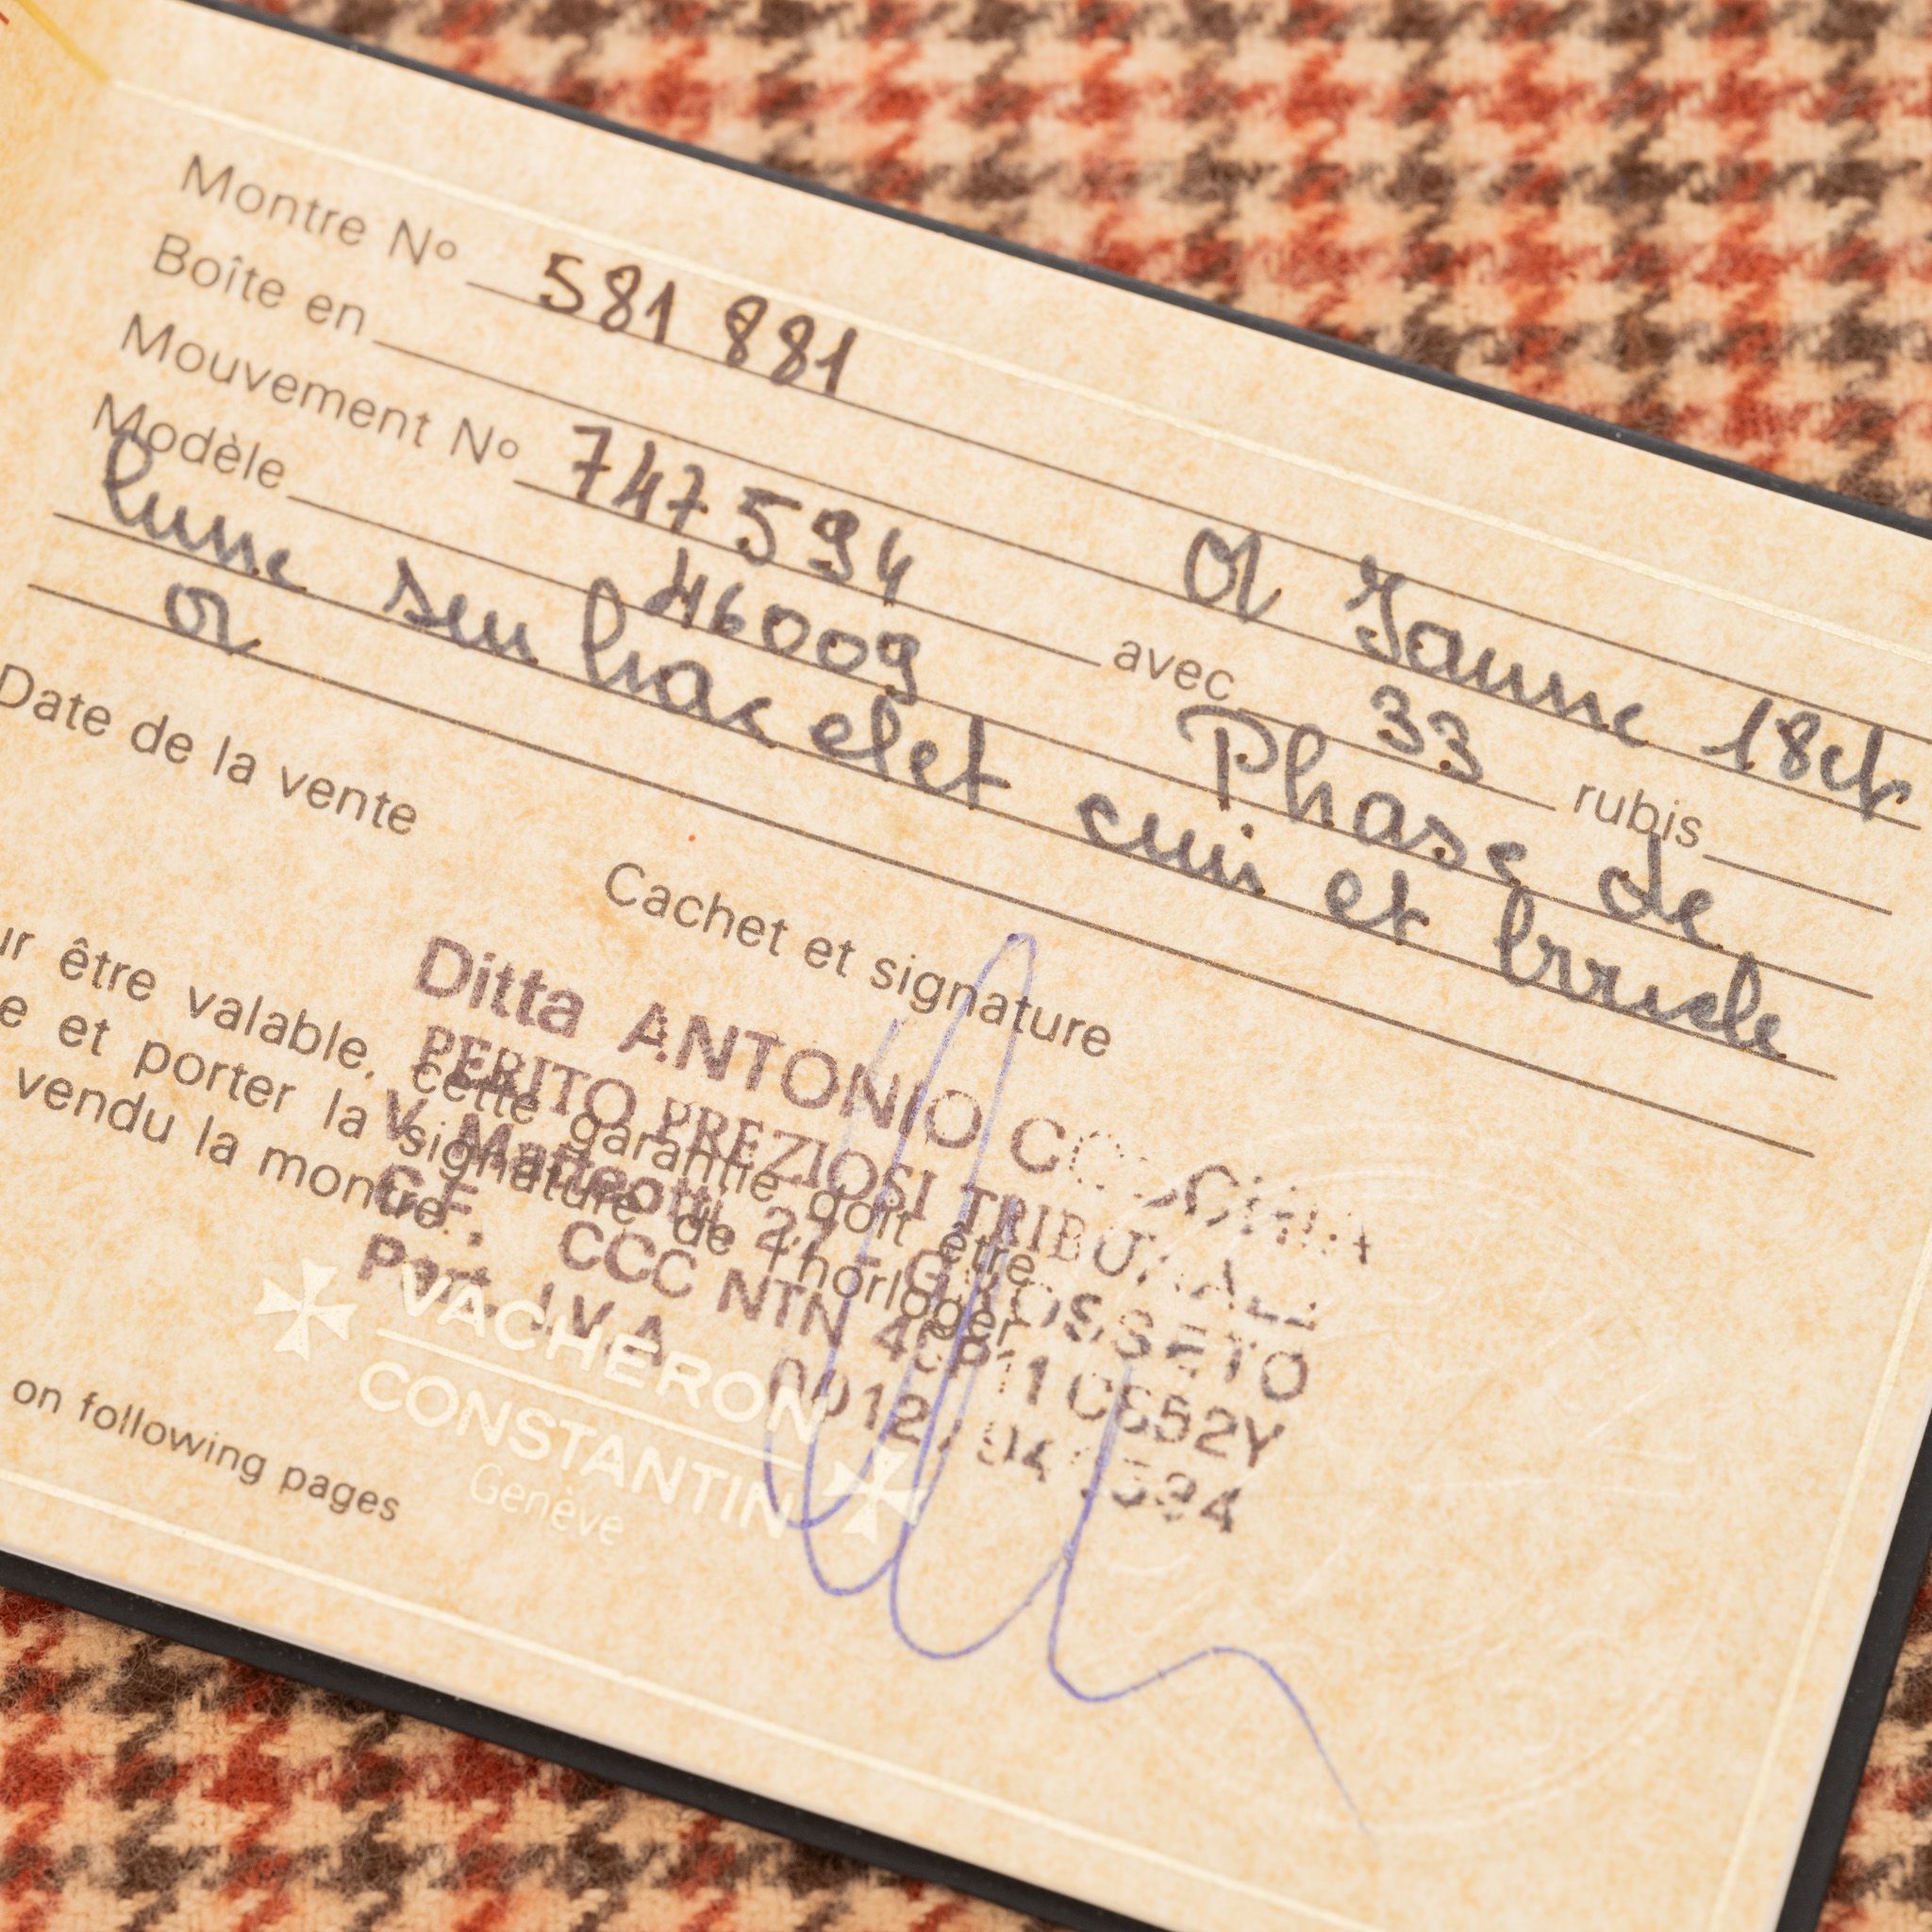 Montre Nº 581 881
Boîte en Or Jaune 18ct
Mouvement Nº 747 594 avec 33 rubis
Modèle 46009 Phase de
lune sur bracelet cuir et boucle
or
Date de la vente
Cachet et signature
Ditta ANTONIO
PERITO PREZIOSI TRIBUNALE
V. Matteotti, 27 - GROSSETO
C.F. CCC NTN
Part. I.V.A.
être valable, cette garantie doit être
et porter la signature de l'horloger
vendu la montre.
VACHERON
CONSTANTIN
Genève
on following pages